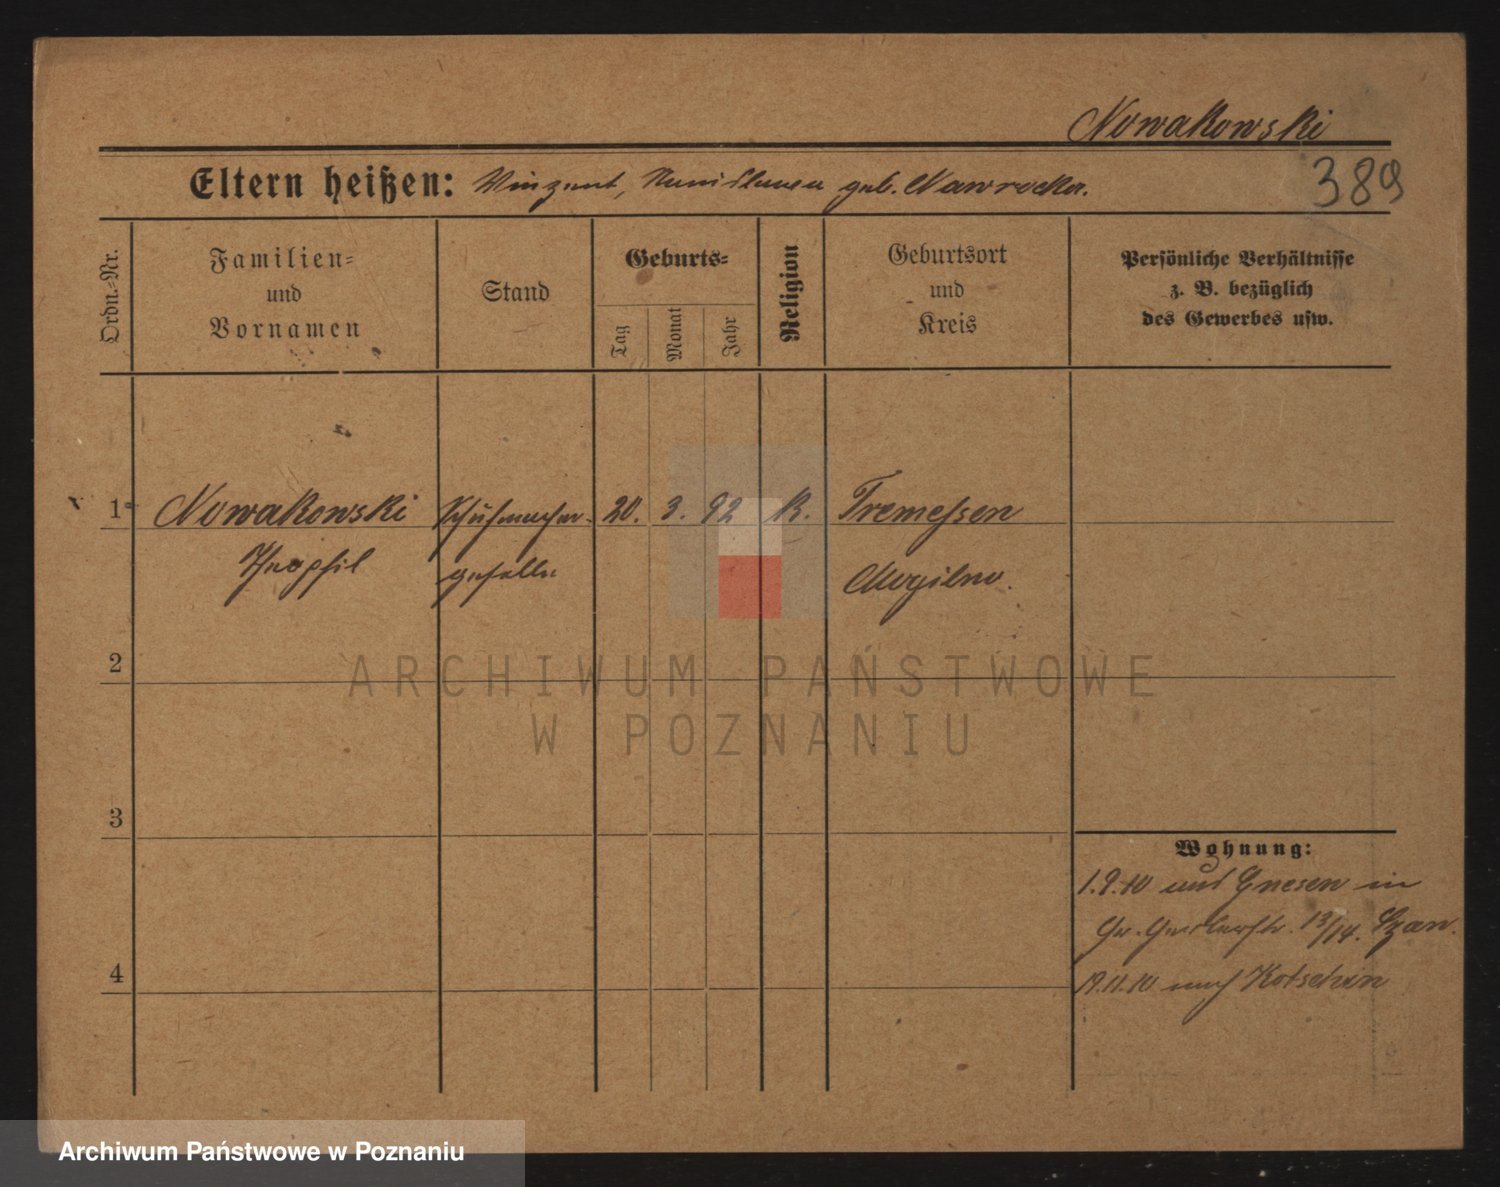 Nowakowski
389
Eltern heißen: Vinzent, Stanislawa geb. Nawrocka.
Ordn.-Nr.
Familien-
und
Vornamen
Stand
Geburts-
Tag
Monat
Jahr
Religion
Geburtsort
und
Kreis
Persönliche Verhältnisse
z. B. bezüglich
des Gewerbes usw.
1 Nowakowski Schuhmacher- 20. 3. 92 K. Tremessen
Theophil geselle Mogilno.
2
3
4
Wohnung:
1.9.10 aus Gnesen in
Gr. 13/14.
19.11.10 nach Kotschin
ARCHIWUM PAŃSTWOWE
W POZNANIU
Archiwum Państwowe w Poznaniu